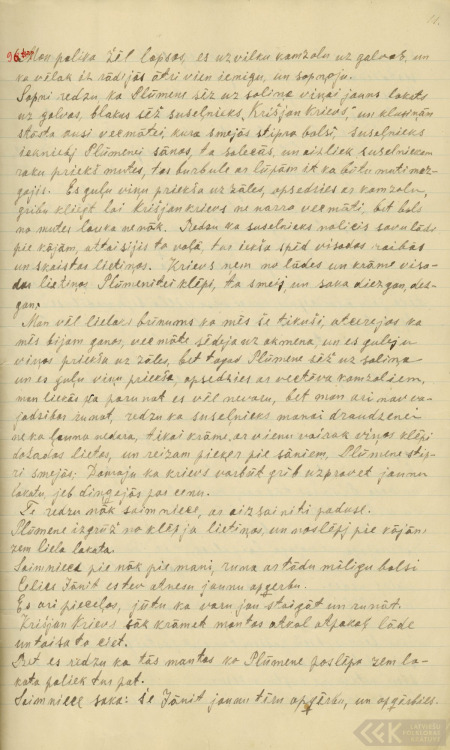 11.
96 Man palika žēl lopsos, es uzvilku kamzolu uz galvas, un
ka vēlak iz rādijās ātri vien iemigu, un sapņoju.
Sapni redzu, ka Plūmene sēž uz soliņa viņai jauns lakats
uz galvas, blakus sēž suseļnieks, Krišjan Krievs," un klusiņām
stāsta ausi vecmātei kura smejās stipra balsi suseļnieks
iekniebj Plūmenei sānos, ta salecās, un aizliek suseļniekam
roku priekš mutes, tas burbuļe ar lūpām it ka būtu muti maz-
gājis. Es guļu viņu priekša uz zāles, apsedzies ar kamzolu,
gribu kliegt lai Krišjankrievs ne narro vecmāti, bet bals
no mutes lauka nenāk. Redzu ka suseļnieks nolicis savu lādi
pie kājām, attaisijis to vaļā, tur iekša spīd visadas raibas
un skaistas lietiņas. Krievs ņem no lādes un krāme visa-
das lietiņas Plūmenitei klēpi, ta smej, un saka diezgan, dez-
gan,
Man vēl lielaks brīnums ka mēs še tikuši, atcerejos ka
mēs bijam ganos, vecmāte sēdeja uz akmeņa, un es guleju
viņas priekša uz zāles, bet tagad Plūmene sēž uz soliņa
un es guļu viņu priekša, apsedzies ar vectēva kamzoliem,
man liekās ka parunat es vēl nevaru, bet man ari nav va-
jadzibas runat, redzu ka suseļnieks manai draudzenei
neka ļauna nedara, tikai krāme, ar vienu vairak viņas klēpi
dažadas lietas, un reizam pieker pie sāniem, Plūmene stip-
ri smejās; Domaju ka krievs varbūt grib uzpravet jaunu
lakatu, jeb dingejās par cenu.
Te redzu nāk saimniece, ar aizsainiti padusē.
Plūmene izgrūž no klēpja lietiņas, un noslēpj pie kājām
zem liela lakata.
Saimniece pie nāk pie mani, runa ar tādu mīligu balsi
Celies Jānit es tev atnesu jaunu apģerbu.
Es ari pieceļos, jūtu ka varu jau staigāt un runāt.
Krišjan Krievs sāk krāmet mantas atkal atpakaļ lāde
un taisa to ciet.
Bet es redzu ka tās mantas ko Plūmene paslēpa zem la-
kata paliek tur pat.
Saimniece saka: še Jānit jaunu tēru apģērbu, un apģērbies.
LATVIEŠU FOLKLORAS KRĀTUVE